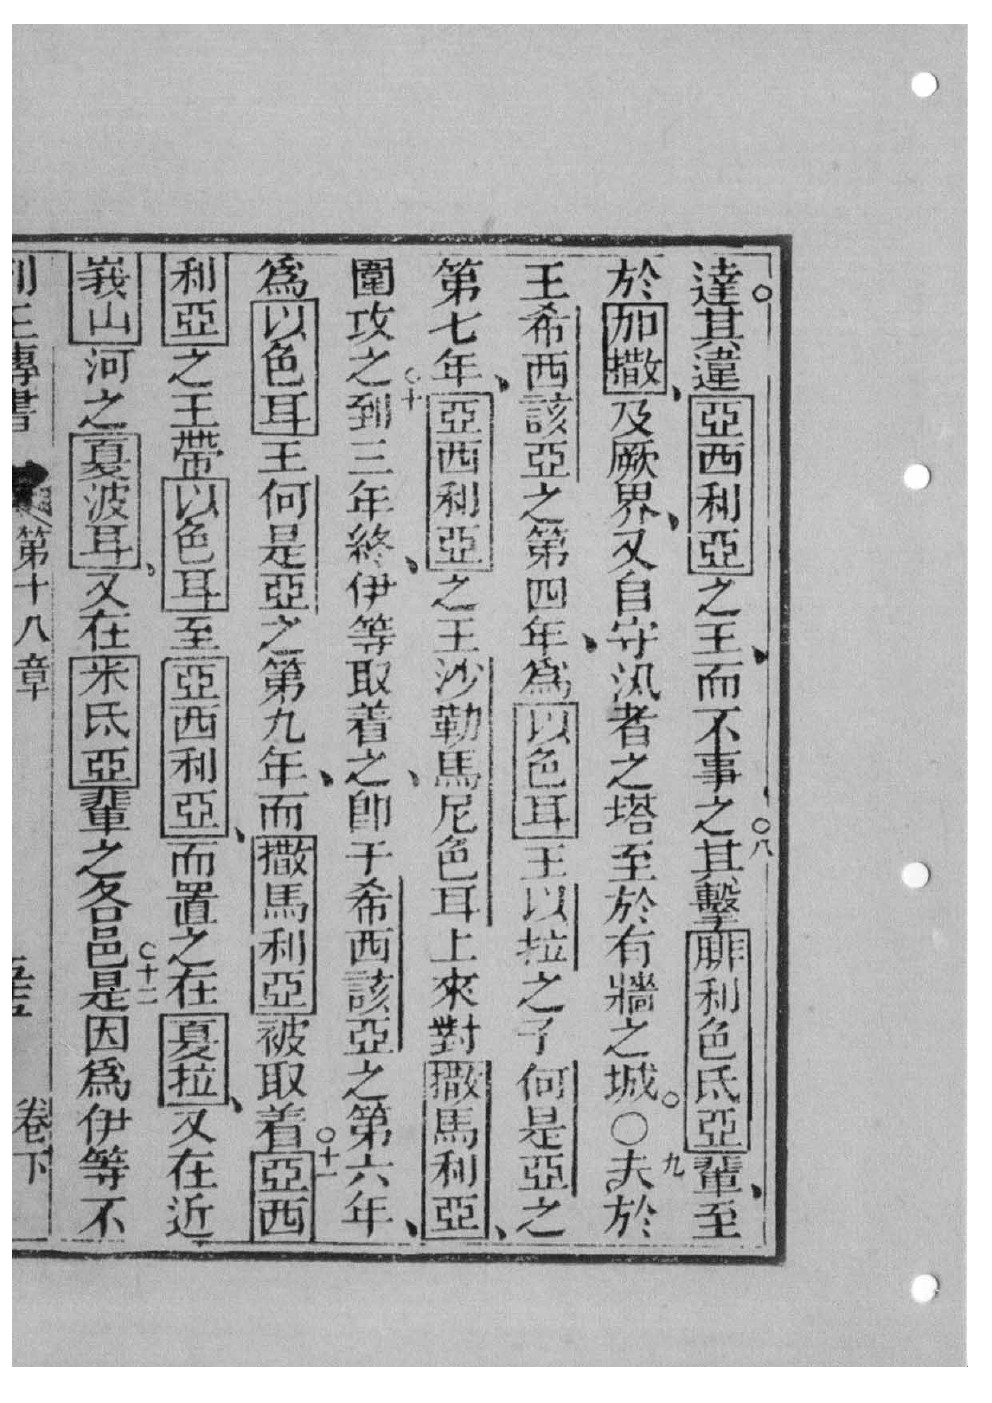 達其違亞西利亞之王而不事之○八其擊腓利色氐亞輩至
於加撒及厥界又自守汛者之塔至於有牆之城○九夫於
王希西該亞之第四年爲以色耳王以拉之子何是亞之
第七年亞西利亞之王沙勒馬尼色耳上來對撒馬利亞
圍攻之○十到三年終伊等取着之卽于希西該亞之第六年
爲以色耳王何是亞之第九年而撒馬利亞被取着○十一亞西
利亞之王帶以色耳至亞西利亞而置之在夏拉又在近
峩山河之夏波耳又在米氐亞輩之各邑○十二是因爲伊等不
列王傳書 第十八章 卷下